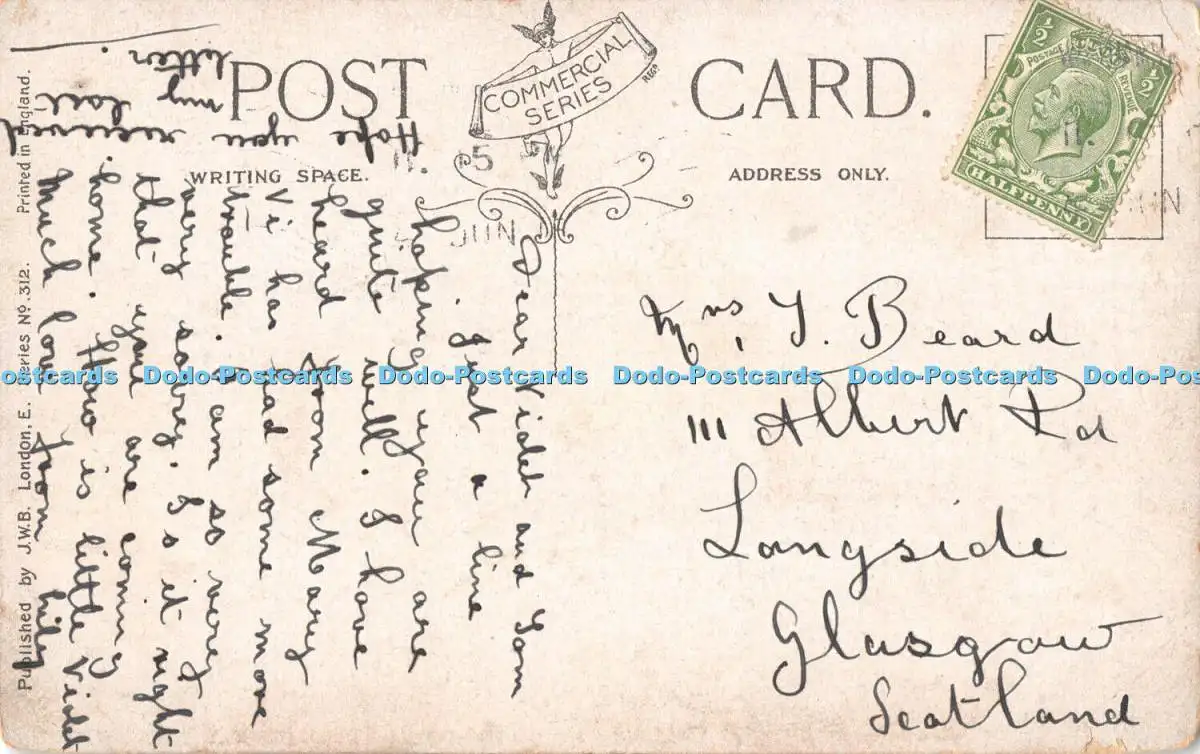 POST CARD.
COMMERCIAL
SERIES
REGD
WRITING SPACE.
ADDRESS ONLY.
½ ½
POSTAGE REVENUE
HALFPENNY
5
JUN
11.
Published by J.W.B. London, E. Series No. 312. Printed in England.
Dear Violet and Tom
Just a line
hoping you are
quite well. I have
heard from Mary
Vi has had some more
trouble. I am so very
very sorry. Is it right
that you are coming
home. How is little Violet
Much love from Lily
Hope you received
my last
letter.
Mrs, T. Beard
111 Albert Rd
Langside
Glasgow
Scotland
Dodo-Postcards Dodo-Postcards Dodo-Postcards Dodo-Postcards